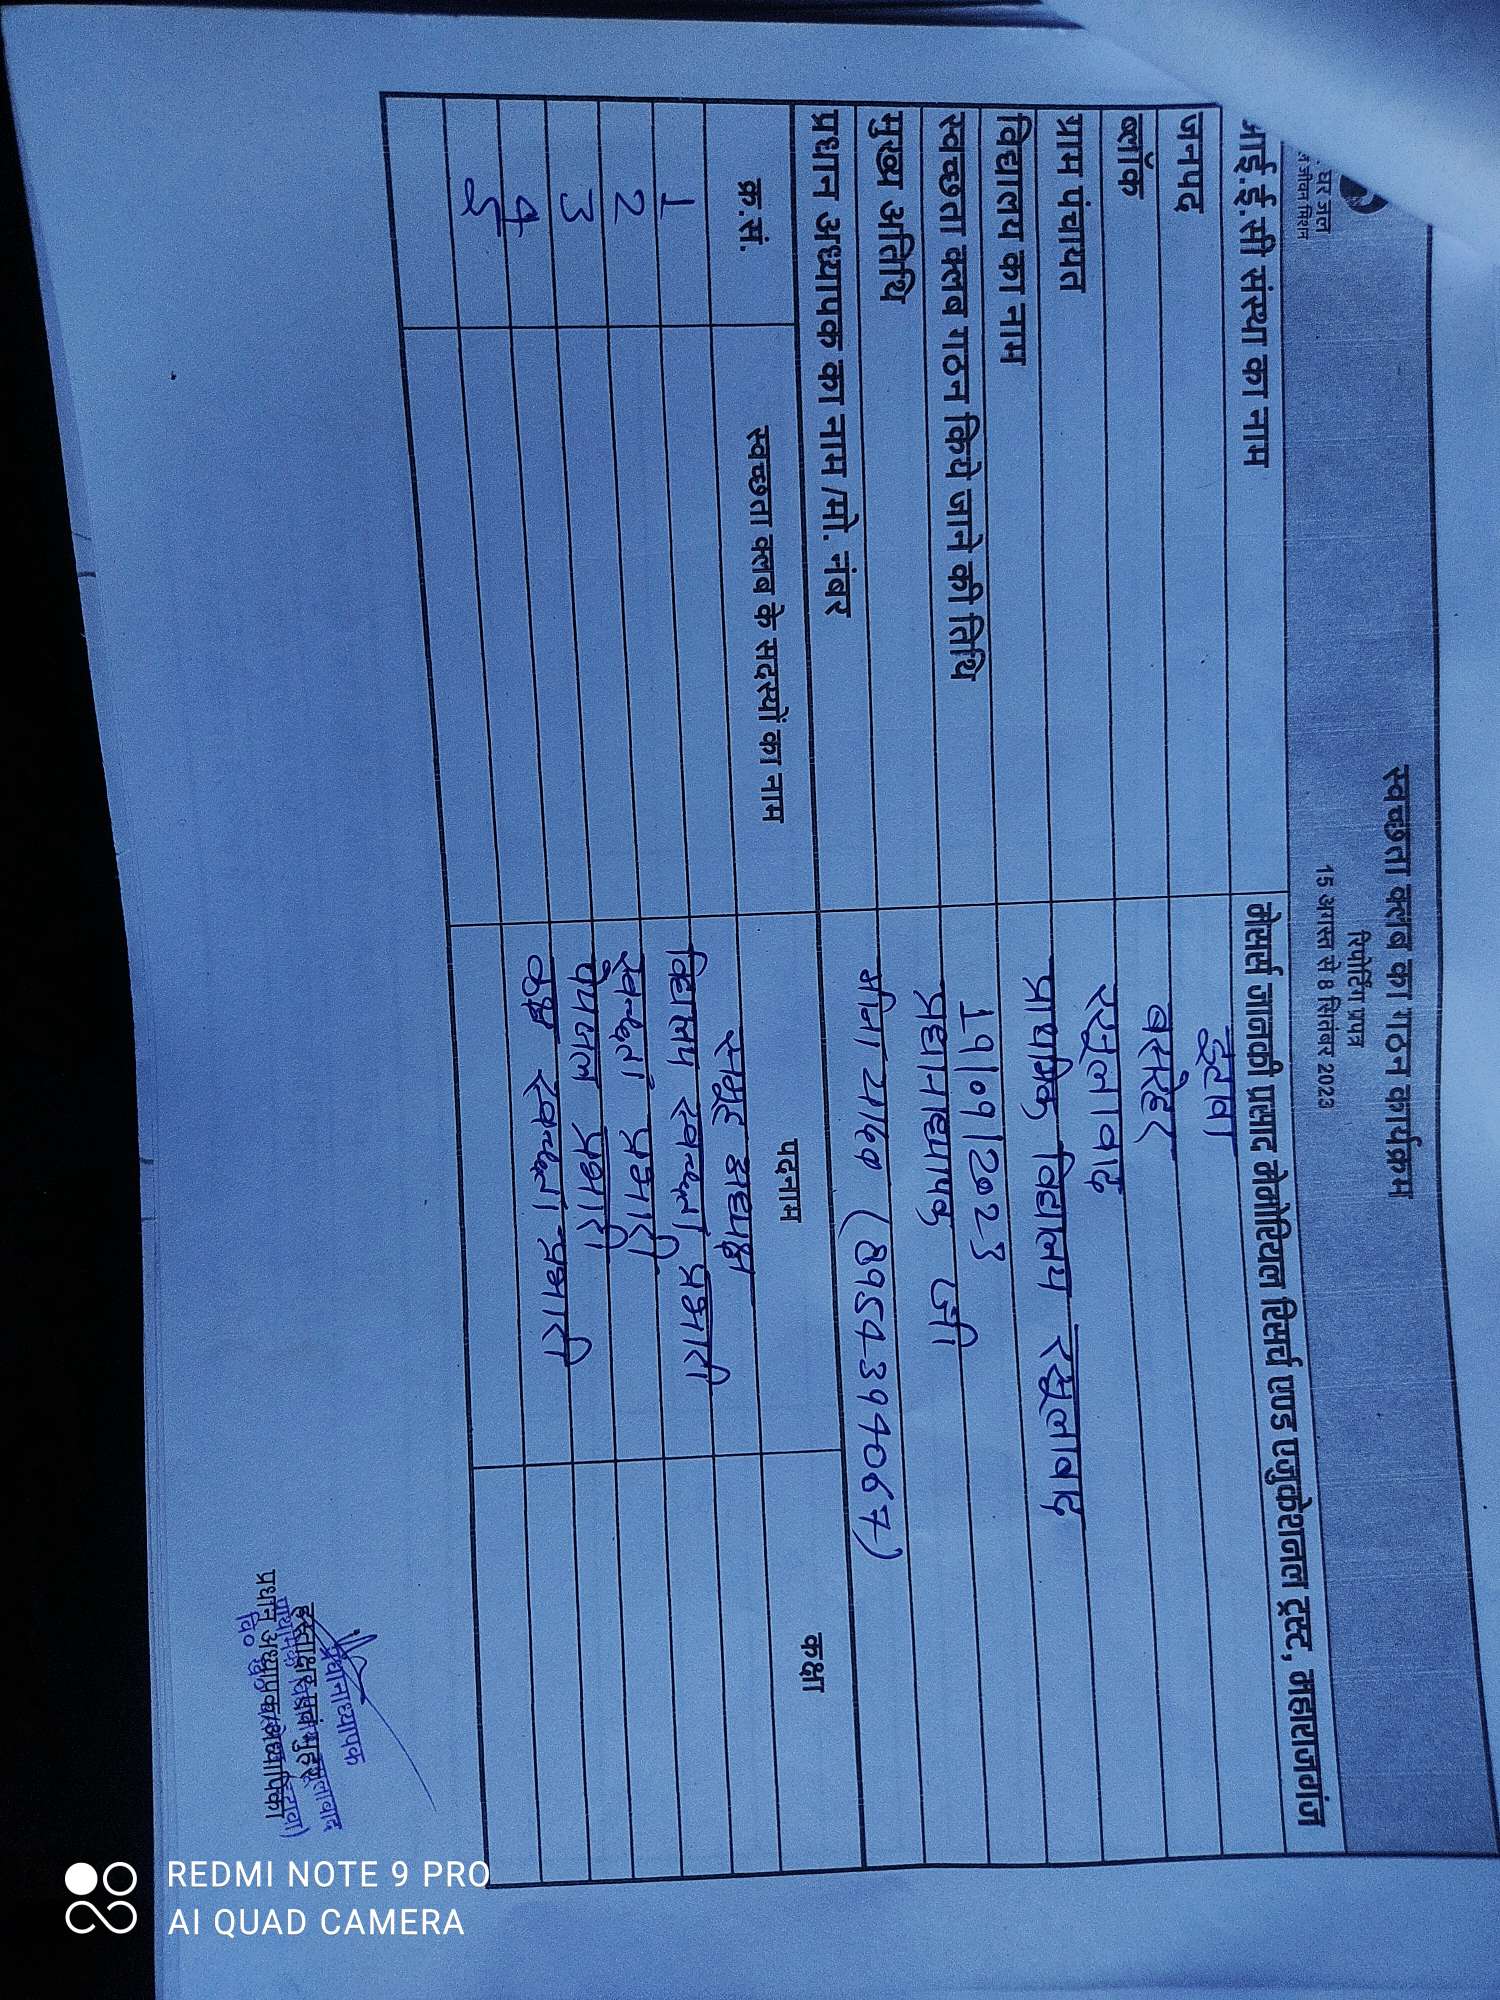 स्वच्छता क्लब का गठन कार्यक्रम
रिपोर्टिंग प्रपत्र
15 अगस्त से 8 सितंबर 2023
घर जल
जीवन मिशन
आई.ई.सी संस्था का नाम मेसर्स जानकी प्रसाद मेमोरियल रिसर्च एण्ड एजुकेशनल ट्रस्ट, महाराजगंज
जनपद इटावा
ब्लॉक बसरेहर
ग्राम पंचायत रसूलाबाद
विद्यालय का नाम प्राथमिक विद्यालय रसूलाबाद
स्वच्छता क्लब गठन किये जाने की तिथि 19/09/2023
मुख्य अतिथि प्रधानाध्यापक जी
प्रधान अध्यापक का नाम /मो. नंबर (8954394067)
क्र.सं. स्वच्छता क्लब के सदस्यों का नाम पदनाम कक्षा
1 समूह अध्यक्ष
2 विद्यालय स्वच्छता प्रभारी
3 स्वच्छता प्रभारी
4 पेयजल प्रभारी
5 कक्ष स्वच्छता प्रभारी
प्रधानाध्यापक
हस्ताक्षर एवं मुहर
प्रधान अध्यापक/अध्यापिका
REDMI NOTE 9 PRO
AI QUAD CAMERA